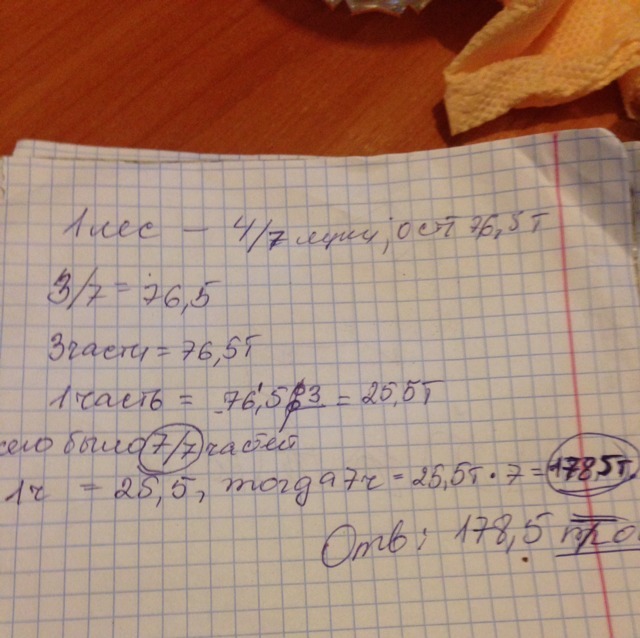 1 мес – 4/7 муки, ост 76,5т
3/7 = 76,5
3 части = 76,5т
1 часть = 76,5 : 3 = 25,5т
было 7/7 частей
1ч = 25,5, тогда 7ч = 25,5т · 7 = 178,5т
Отв: 178,5